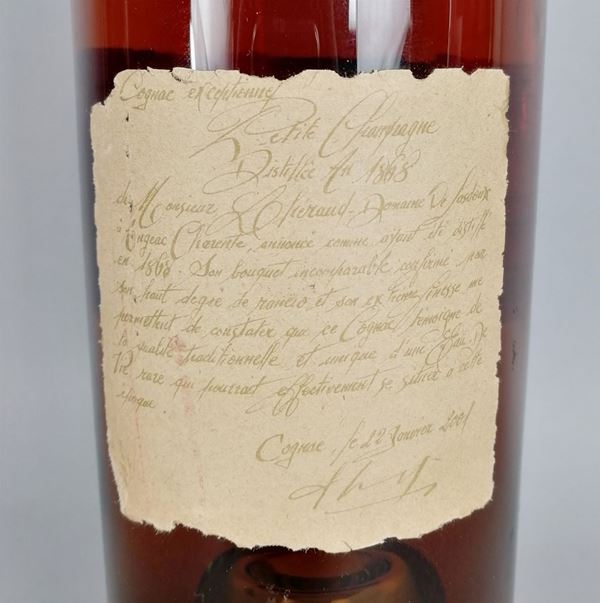 Cognac exceptionnel
Petite Champagne
Distillée En 1868
de Monsieur Lhéraud - Domaine De Lasdoux
à Angeac Charente, annoncé comme ayant été distillé
en 1868. Son bouquet incomparable confirmé par
son haut degré de rancio et son extrême finesse me
permettent de constater que ce Cognac témoigne de
la qualité traditionnelle et unique d'une Eau De
Vie rare qui pourrait effectivement se situer a cette
époque.
Cognac, le 22 Janvier 2001